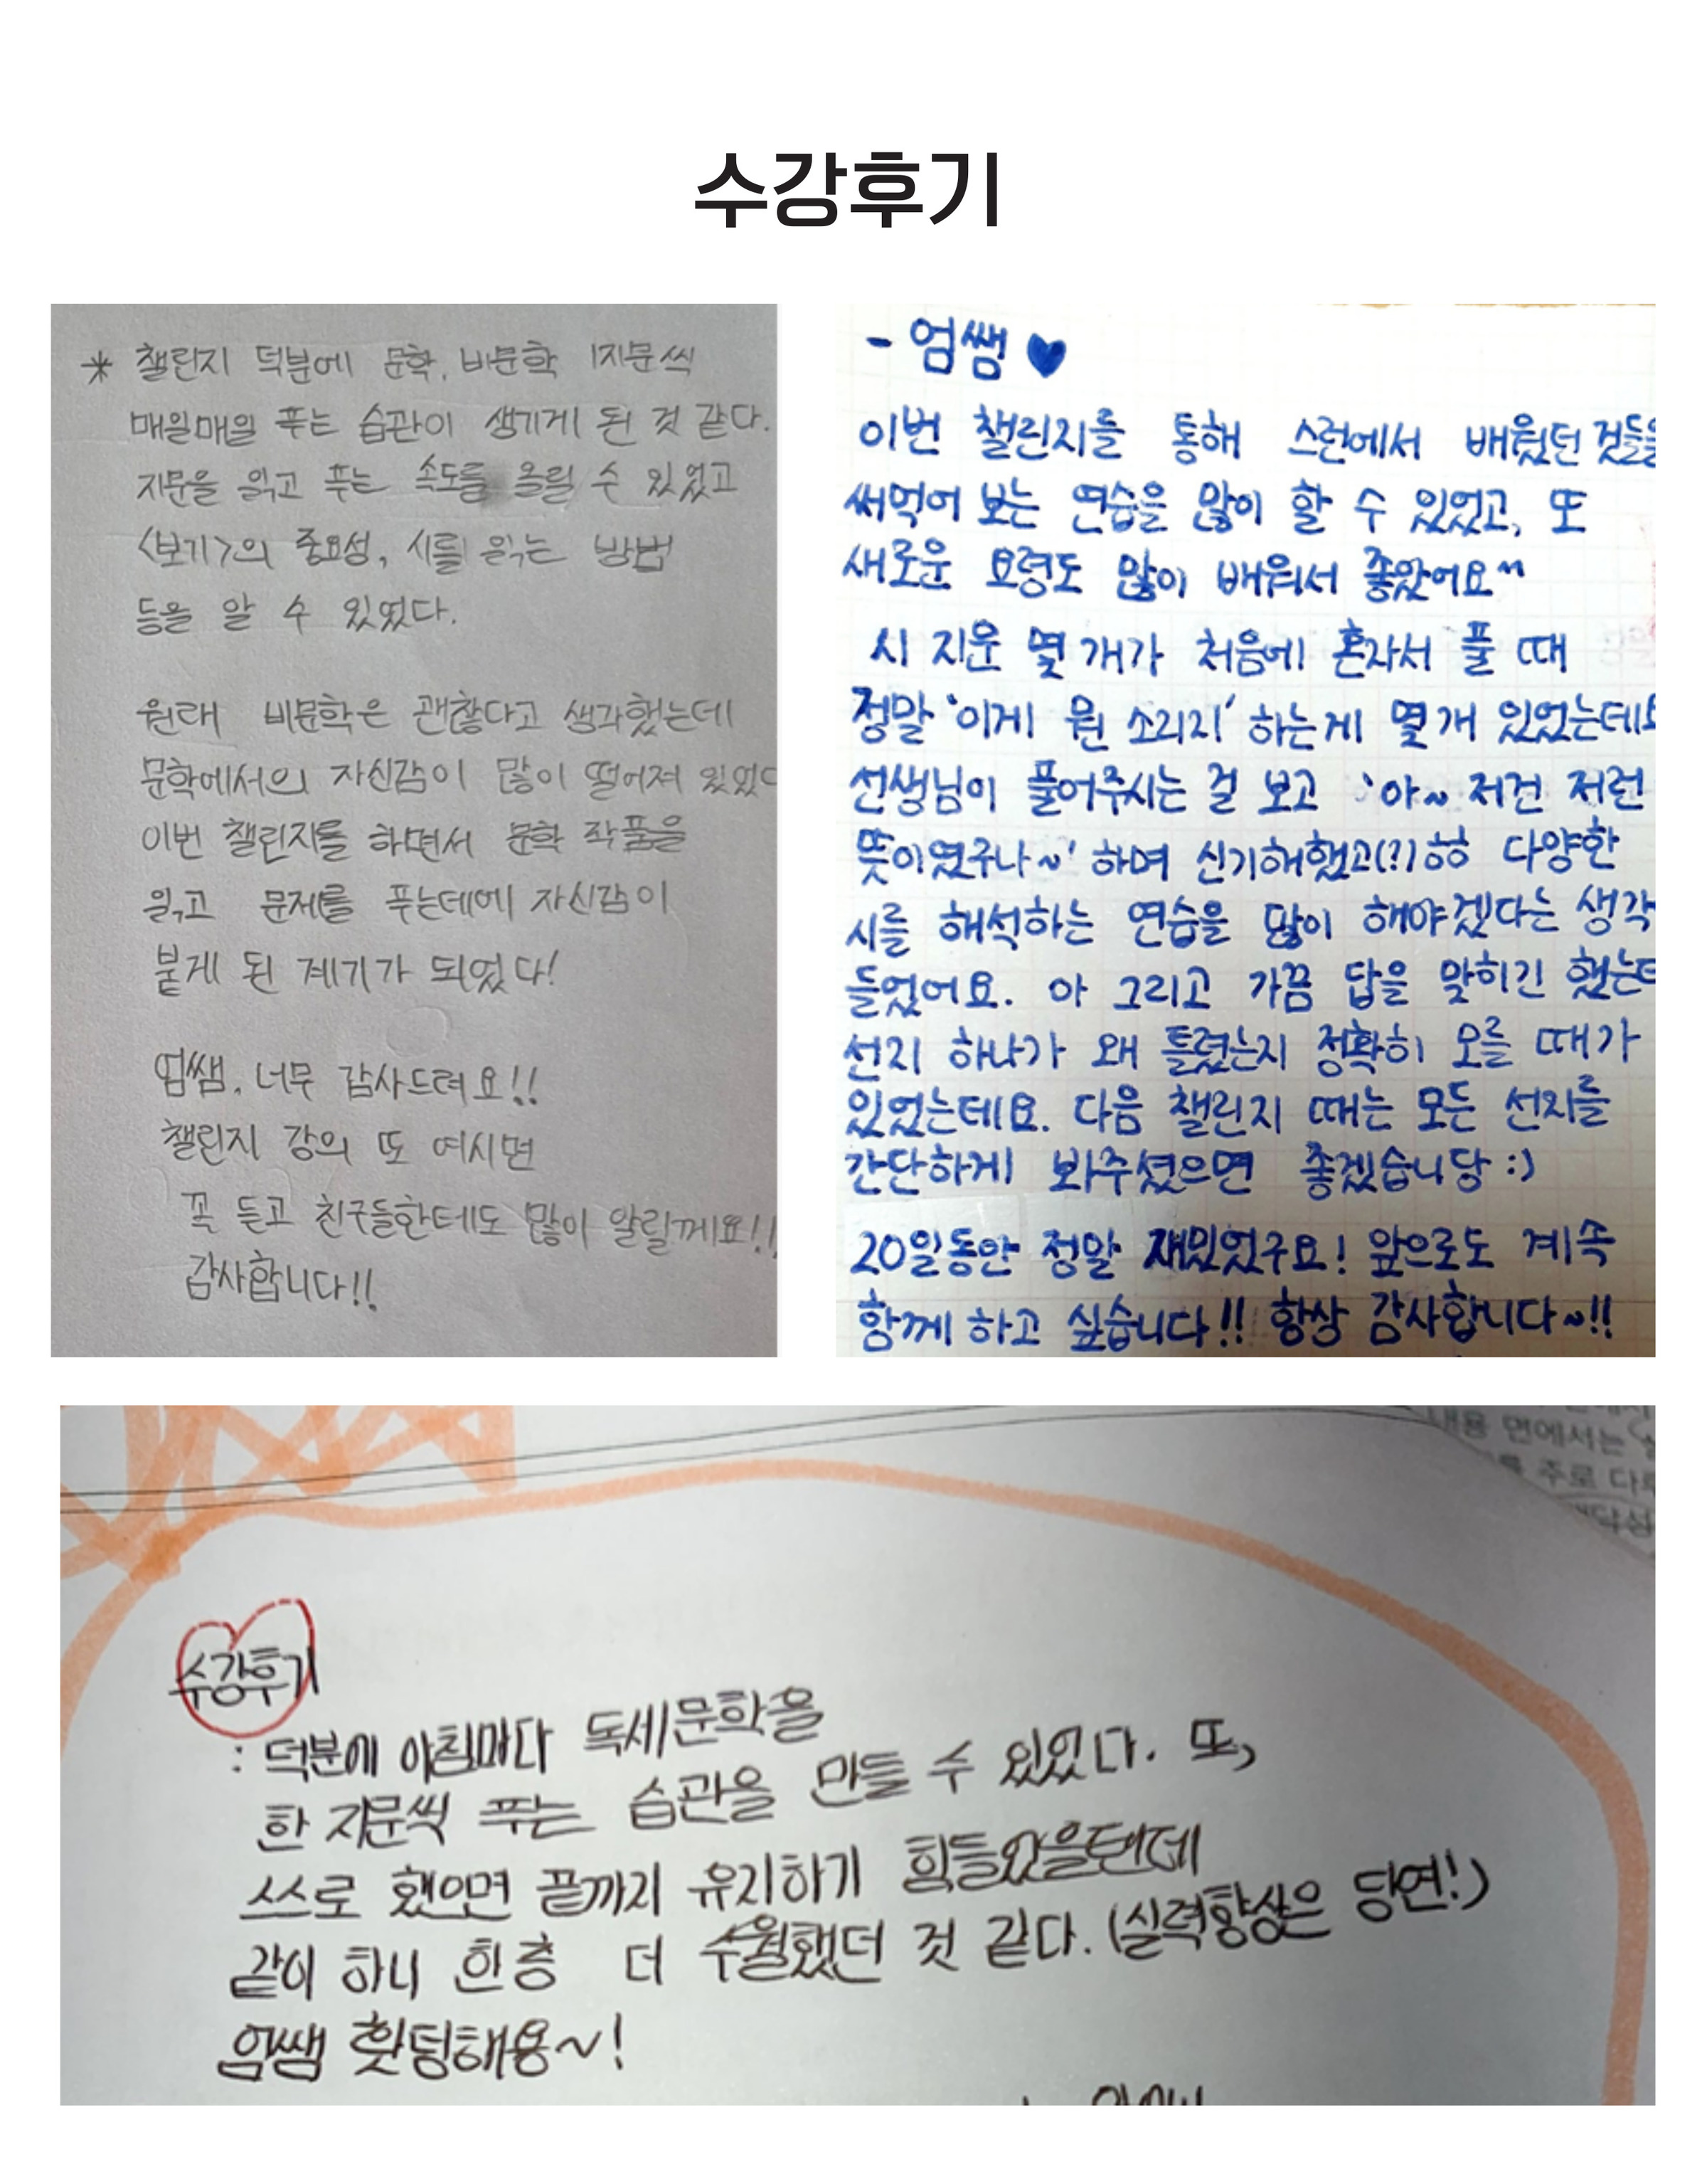 수강후기
* 챌린지 덕분에 문학, 비문학 1지문씩
매일매일 푸는 습관이 생기게 된 것 같다.
지문을 읽고 푸는 속도를 올릴 수 있었고
<보기>의 중요성, 시를 읽는 방법
등을 알 수 있었다.
원래 비문학은 괜찮다고 생각했는데
문학에서의 자신감이 많이 떨어져 있었다
이번 챌린지를 하면서 문학 작품을
읽고 문제를 푸는데에 자신감이
붙게 된 계기가 되었다!
엄쌤, 너무 감사드려요!!
챌린지 강의 또 여시면
꼭 듣고 친구들한테도 많이 알릴께요!!
감사합니다!!
- 엄쌤 ♥
이번 챌린지를 통해 스런에서 배웠던 것들을
써먹어 보는 연습을 많이 할 수 있었고, 또
새로운 요령도 많이 배워서 좋았어요^^
시 지문 몇 개가 처음에 혼자서 풀 때
정말 '이게 뭔 소리지' 하는게 몇 개 있었는데요
선생님이 풀어주시는 걸 보고 '아~ 저건 저런
뜻이였구나~' 하며 신기해했고(?)ㅎㅎ 다양한
시를 해석하는 연습을 많이 해야겠다는 생각
들었어요. 아 그리고 가끔 답을 맞히긴 했는데
선지 하나가 왜 틀렸는지 정확히 모를 때가
있었는데요. 다음 챌린지 때는 모든 선지를
간단하게 봐주셨으면 좋겠습니당 :)
20일동안 정말 재밌었구요! 앞으로도 계속
함께 하고 싶습니다!! 항상 감사합니다~!!
내용 면에서는
주로 다
수강후기
: 덕분에 아침마다 독서문학을
한 지문씩 푸는 습관을 만들 수 있었다. 또,
스스로 했으면 끝까지 유지하기 힘들었을텐데
같이 하니 한층 더 수월했던 것 같다. (실력향상은 당연!)
엄쌤 홧팅해용~!